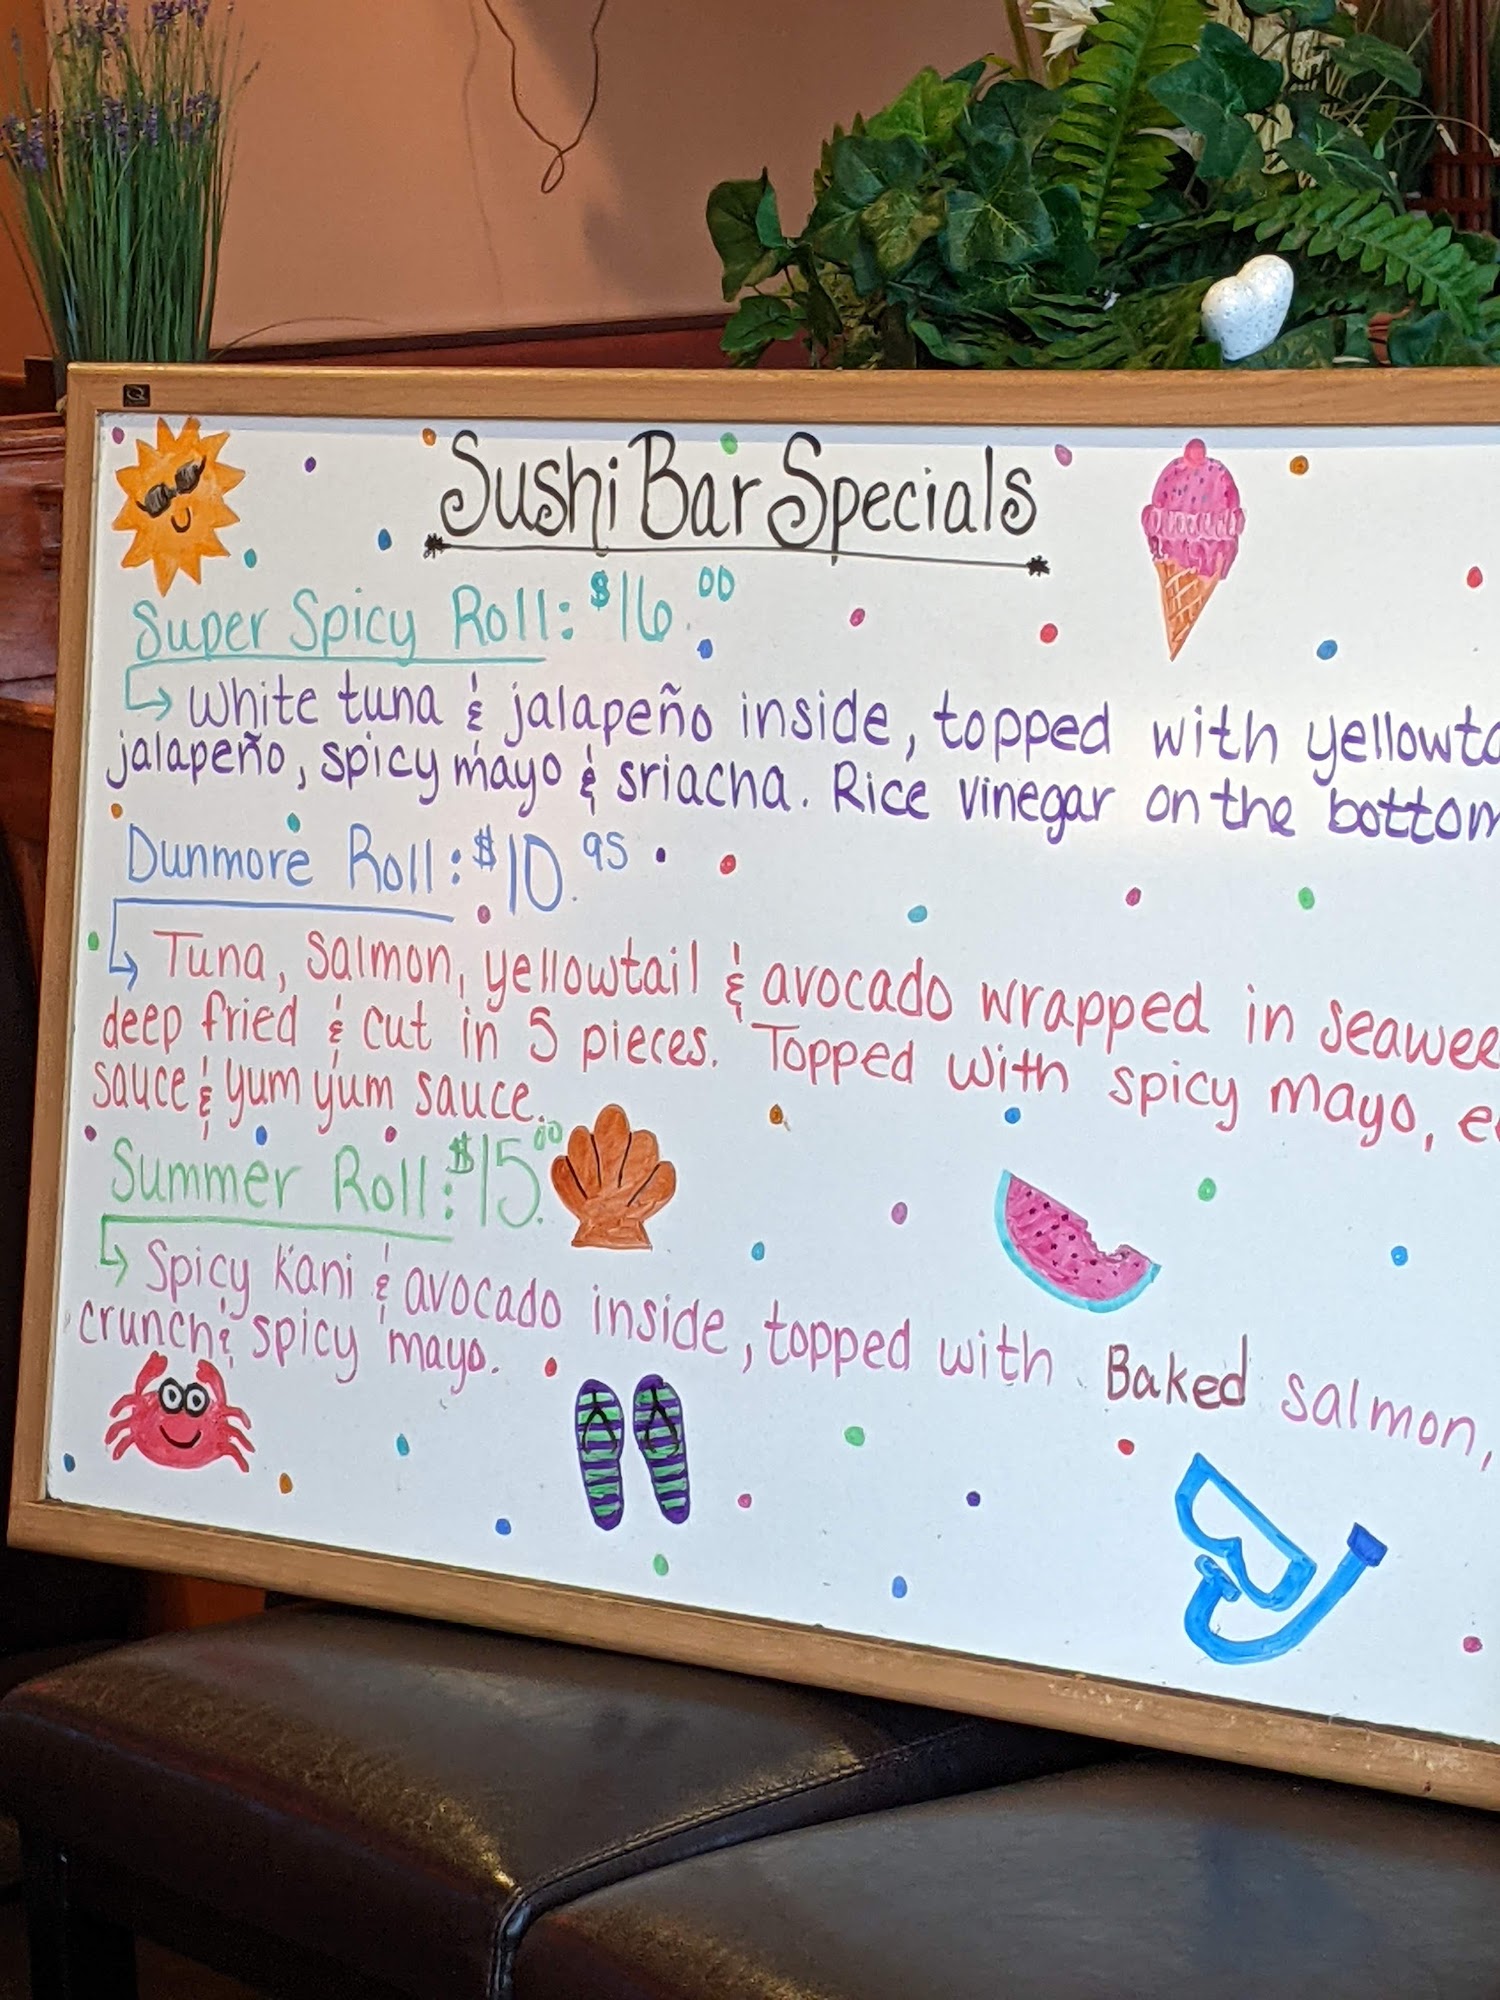 Sushi Bar Specials
Super Spicy Roll: $16.00
White tuna & jalapeño inside, topped with
jalapeño, spicy mayo & sriacha. Rice vinegar on the bottom
Dunmore Roll: $10.95
Tuna, salmon, yellowtail & avocado wrapped in
deep fried & cut in 5 pieces. Topped with spicy mayo,
sauce & yum yum sauce.
Summer Roll: $15.00
Spicy Kani & avocado inside, topped with Baked salmon,
crunch & spicy mayo.